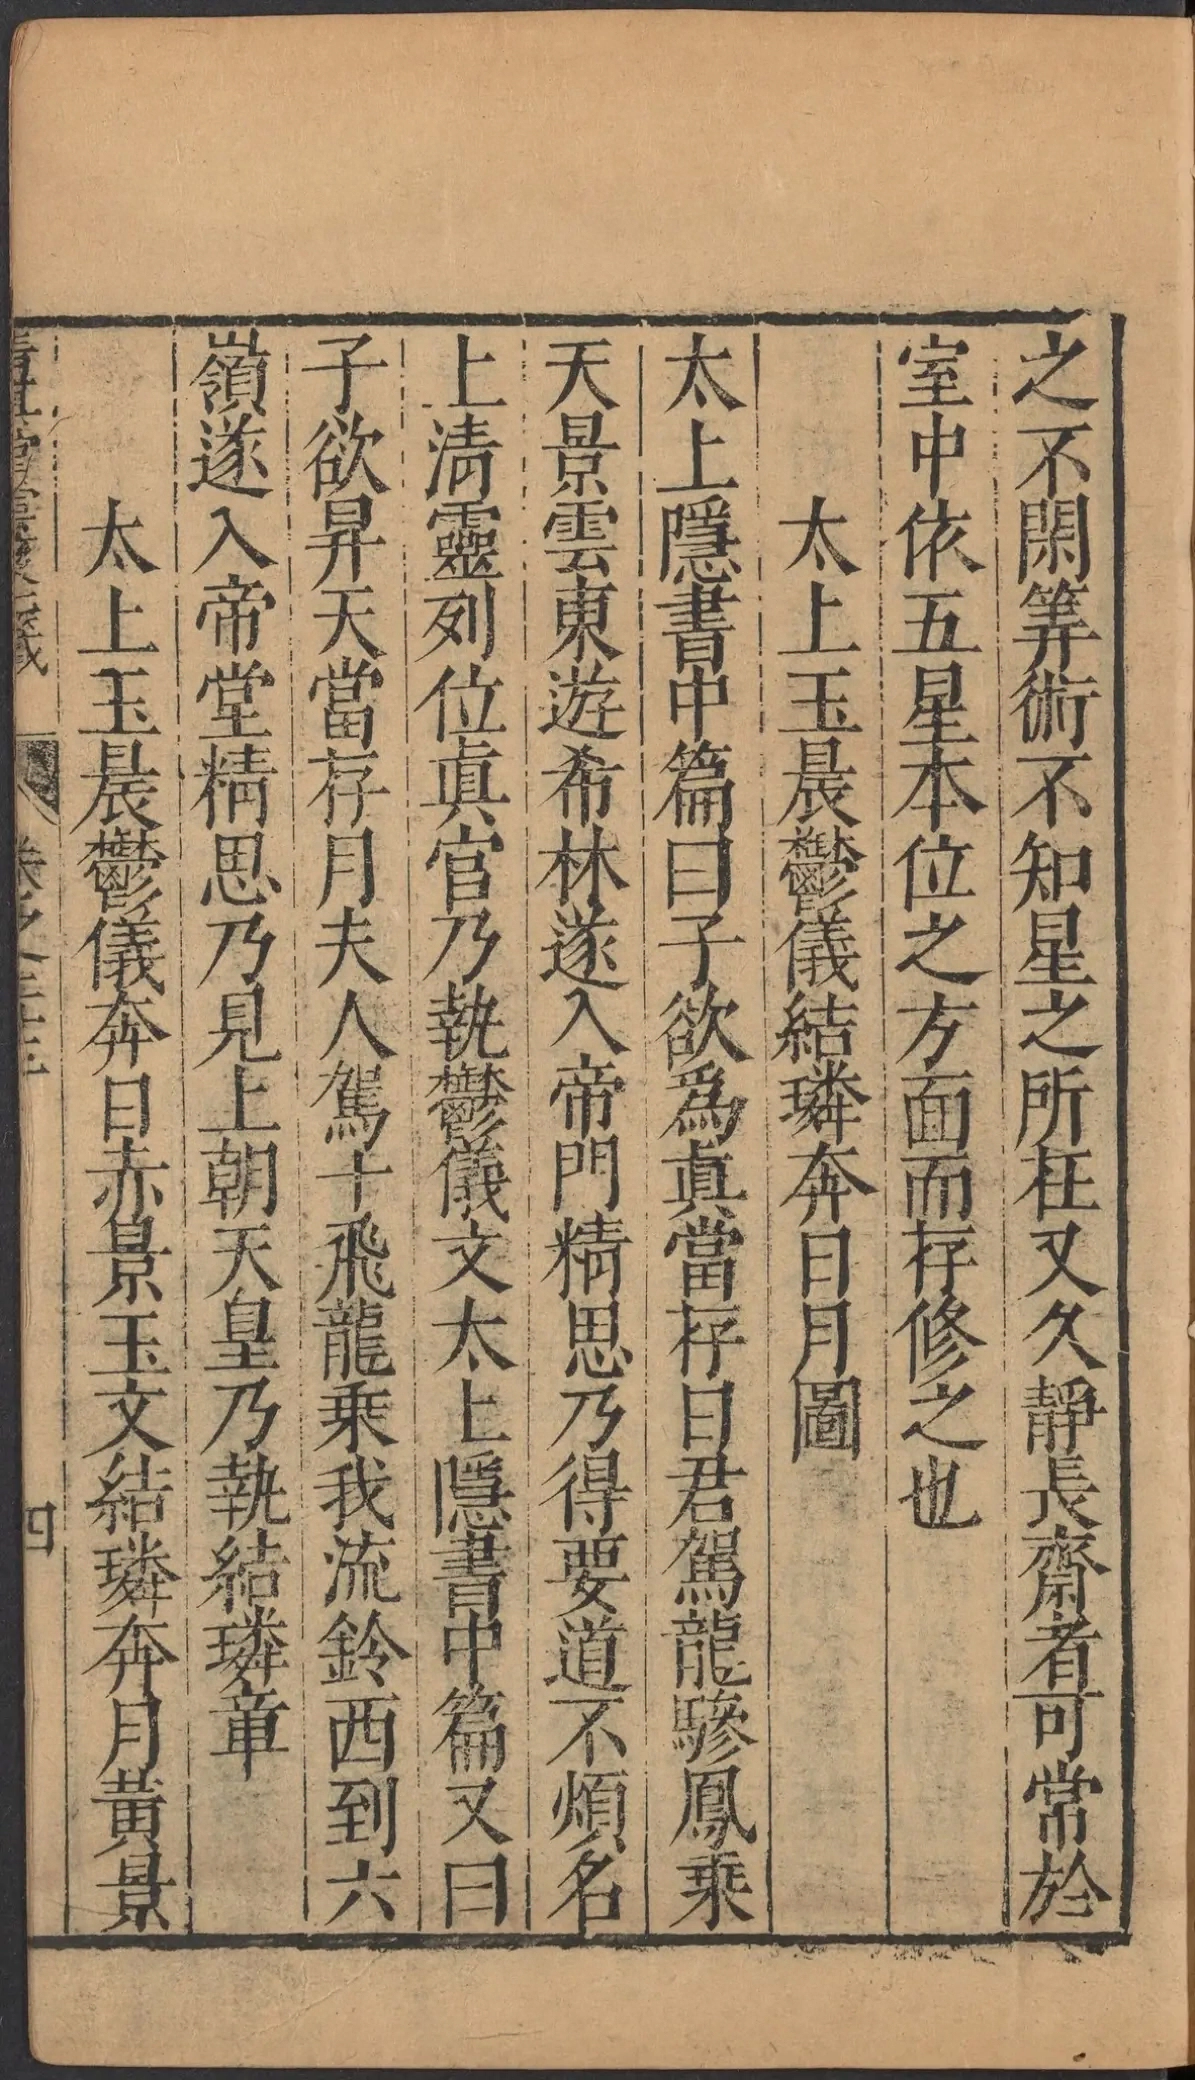 之不閑筭術不知星之所在又久靜長齋者可常於
室中依五星本位之方面而存修之也
太上玉晨鬱儀結璘奔日月圖
太上隱書中篇曰子欲爲眞當存日君駕龍驂鳳乘
天景雲東遊希林遂入帝門精思乃得要道不煩名
上清靈列位眞官乃執鬱儀文太上隱書中篇又曰
子欲昇天當存月夫人駕十飛龍乘我流鈴西到六
嶺遂入帝堂精思乃見上朝天皇乃執結璘章
太上玉晨鬱儀奔日赤景玉文結璘奔月黃景
清眞館雲笈七籤 卷之二十三 四